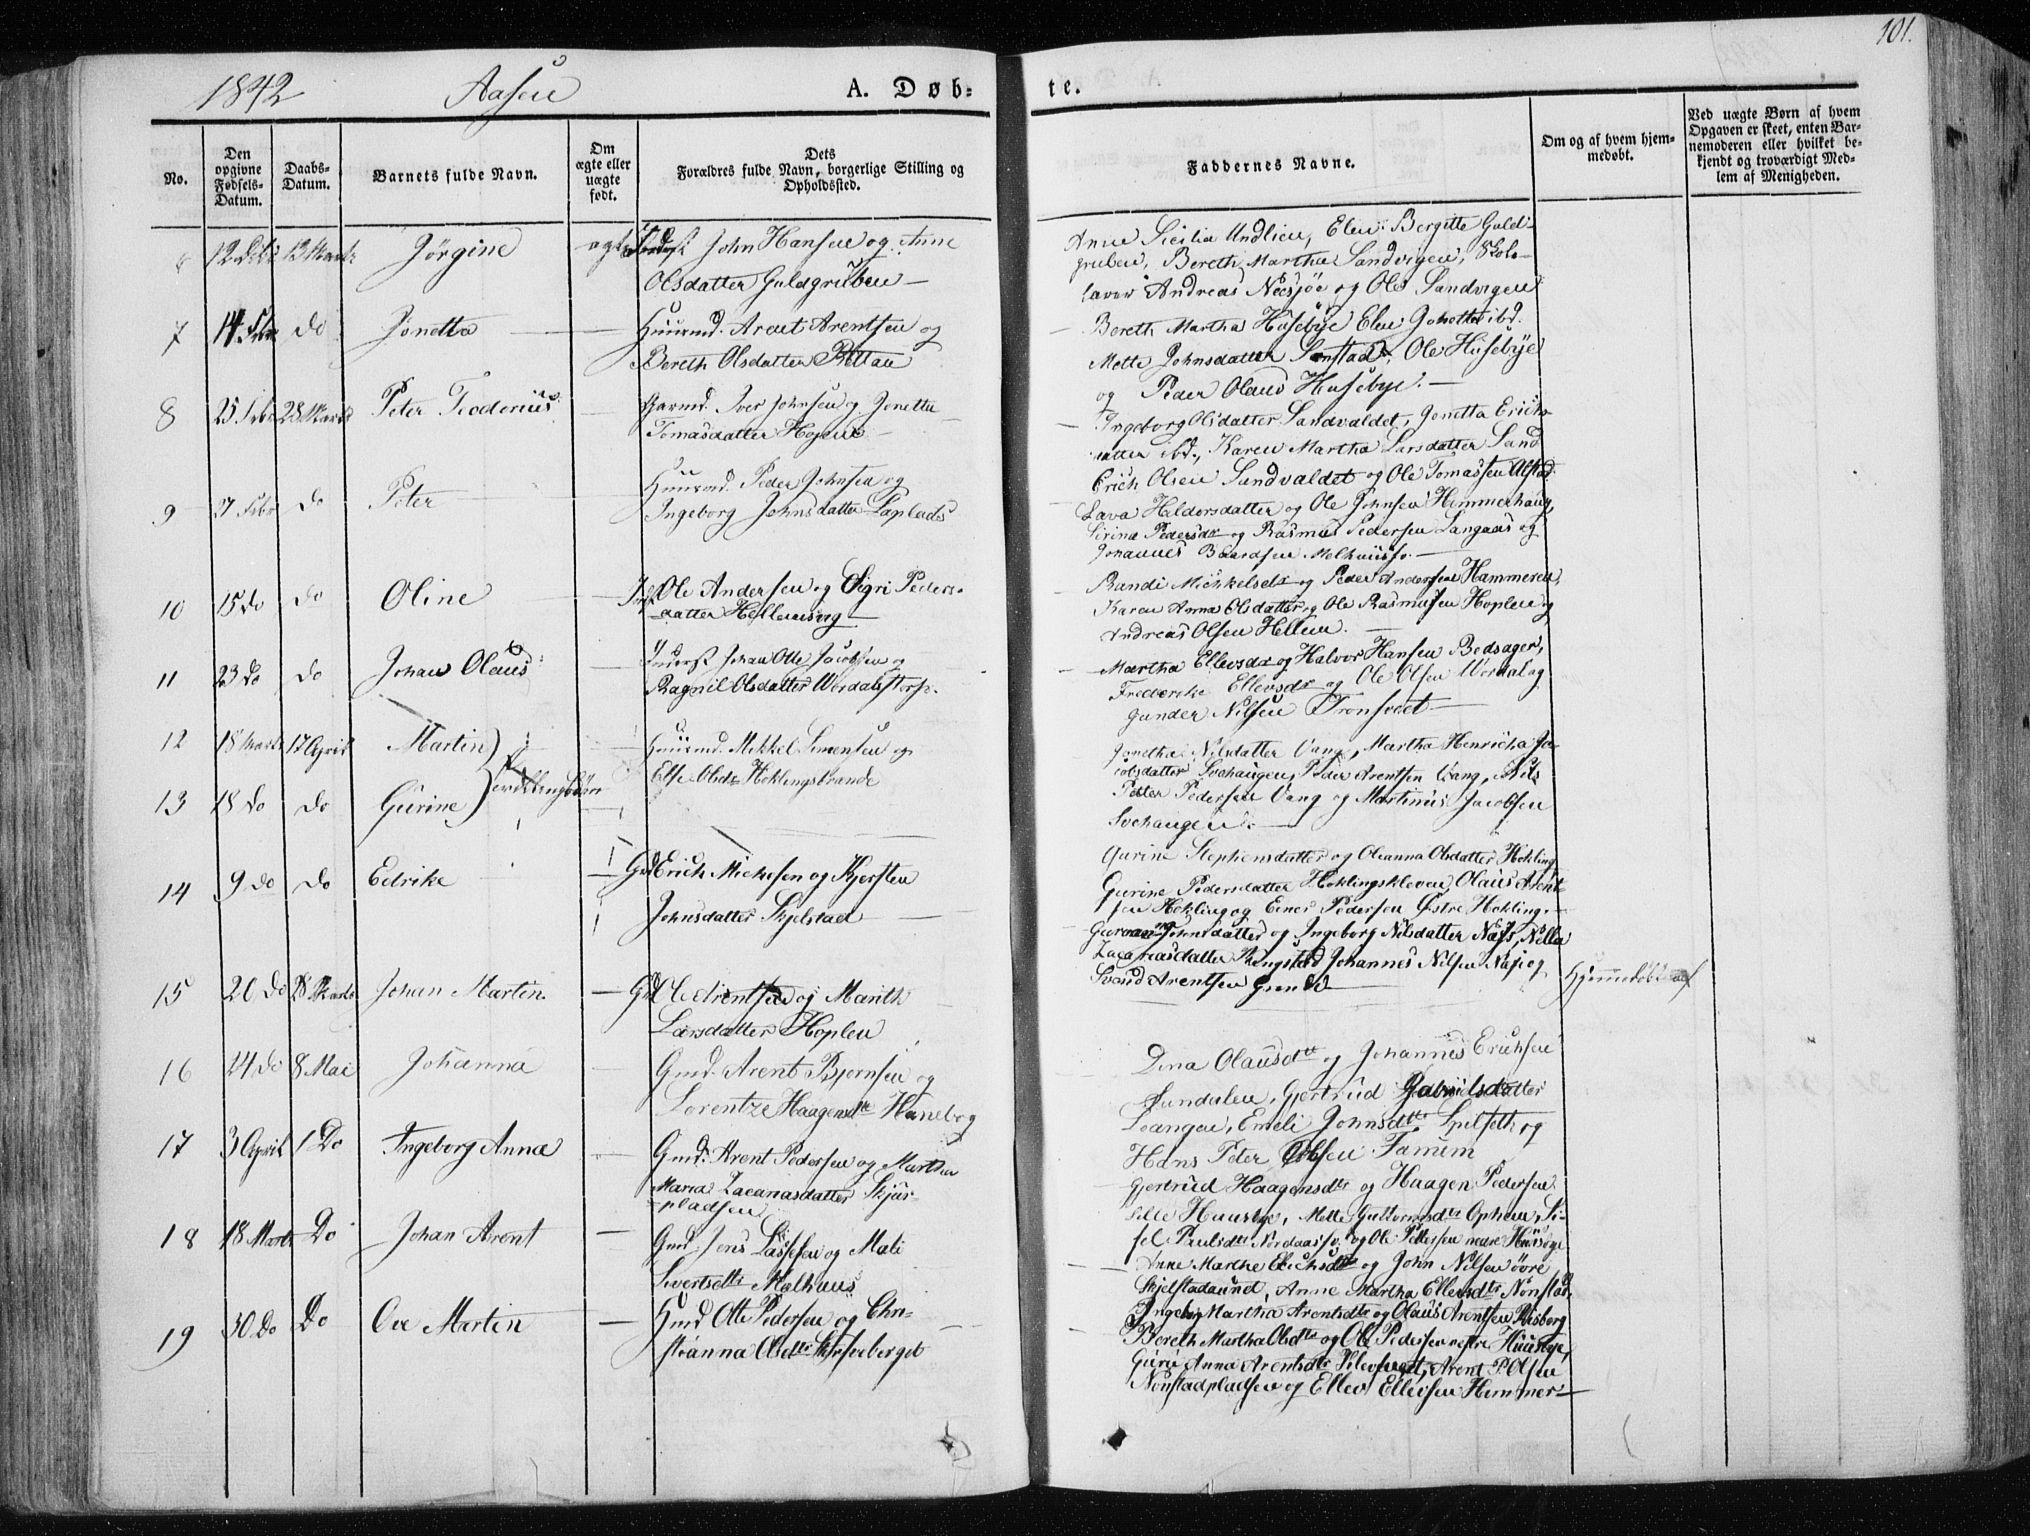 1842 Aasen A. Døb-
te. 101.
No.
Den opgivne Fødsels-Datum.
Daabs-Datum.
Barnets fulde Navn.
Om ægte eller uægte født.
Dets Forældres fulde Navn, borgerlige Stilling og Opholdssted.
Faddernes Navne.
Om og af hvem hjem-medøbt.
Ved uægte Børn af hvem
Opgaven er skeet, enten Bar-
nemoderen eller hvilket be-
kjendt og troværdigt Med-
lem af Menigheden.
Jørgine John Hansen og Anne
Olsdatter Guldgruben
Anne Sicilia Undlien, Elen Bergitte Guld-
gruben, Bereth Martha Sandvigen, Skole-
lærer Andreas Næsjøe og Ole Sandvigen
7 14 Febr do Jonetta Huusmd. Arent Arentsen og
Bereth Olsdatter Rettau
Bereth Martha Husebye Elen Jonetta ibd.
Mette Johnsdatter Ole Husebye
og Peder Olaus Husebye.
8 25 Febr 28 Marts Peter Teoderius Iver Johnsen og Jonetta
Tomasdatter Hojem
Ingeborg Olsdatter Sandvaldet, Jonetta Erichs-
datter ibd., Karen Martha Larsdatter Sand
Erich Olsen Sandvaldet og Ole Tomassen Alstad
9 27 Febr do Peter Huusmd. Peder Johnsen og
Ingeborg Johnsdatter
Lava Heldersdatter og Ole Johnsen Hammerhaug,
Sirina Pedersdr og Rasmus Pedersen Langaas og
Johannes Baardsen
10 15 do do Oline Ole Andersen og Sigri Peders-
datter
Randi Michkelsdr og Peder Andersen Hammeren,
Karen Anna Olsdatter og Ole Rasmusen Hoplen og
Andreas Olsen Hellem.
11 23 do do Johan Olaus Inderst Johan Otte Jacobsen og
Ragnil Olsdatter
Martha Ellevsdr og Halvor Hansen Bedsager,
Fredericke Ellevsdr og Ole Olsen Værdal og
Gunder Nilsen Tronsvedt
12 18 Marts 17 April Martin Huusmd. Mikkel Simensen og
13 18 do do Gurine Else Olsdr Hoklingstrande
Jonetha Nilsdatter Vang, Martha Henricha Ja-
cobsdatter Svehaugen, Peder Arentsen Vang, Nils
Petter Pedersen Vang og Martinus Jacobsen
Svehaugen.
14 9 do do Edrike Gmd Erich Michelsen og Kjersten
Johnsdatter Skjelstad
Gurine Stephensdatter og Oleanna Olsdatter Hokling
Gurine Pedersdatter Hoklingskleven, Olaus Arent-
sen Hokling og Einer Pedersen Østre Hokling.
15 20 do 28 Marts Johan Martin Gmd Ole Arentsen og Marith
Larsdatter Hoplen
Johnsdatter og Ingeborg Nilsdatter Næss, Nella
Zacariasdatter Ringstad Johannes Nilsen Næs og
Svend Arentsen
Hjemmedøbt af
16 24 do 8 Mai Johanna Gmd. Arent Bjørnsen og
Lorentze Haagensdtr Haneborg
Dina Olausdtr og Johannes Erichsen
Sundalen, Gjertrud Gabrielsdatter
Leangen, Emeli Johnsdtr Spilseth og
Hans Peter Olsen Fanum
17 3 April 1 Do Ingeborg Anna Gmd. Arent Pedersen og Martha
Maria Zacariasdatter Skjus-
pladsen
Gjertrud Haagensdtr og Haagen Pedersen
Huusbye, Mette Guttormsdtr Ophem, Si-
sel Paulsdtr og Ole Pettersen nedre Huusbye
18 18 Marts Do Johan Arent Gmd Jens Lassesen og Mali
Sivertsdtr Melhuus
Anne Marthe Erichsdtr og John Nilsen øvre
Skjelstadaunet, Anne Martha Ellevsdtr Nonstad,
Ingeborg Martha Arentsdtr og Olaus Arentsen Risberg
19 30 Do Do Ove Martin Hmd Otte Pedersen og Chri-
stianna Olsdtr
Bereth Martha Olsdtr og Ole Pedersen nedre Huusbye,
Guru Anna Arentsdtr Arent P. Olsen
Nonstadpladsen og Ellev Ellevsen Hammer-